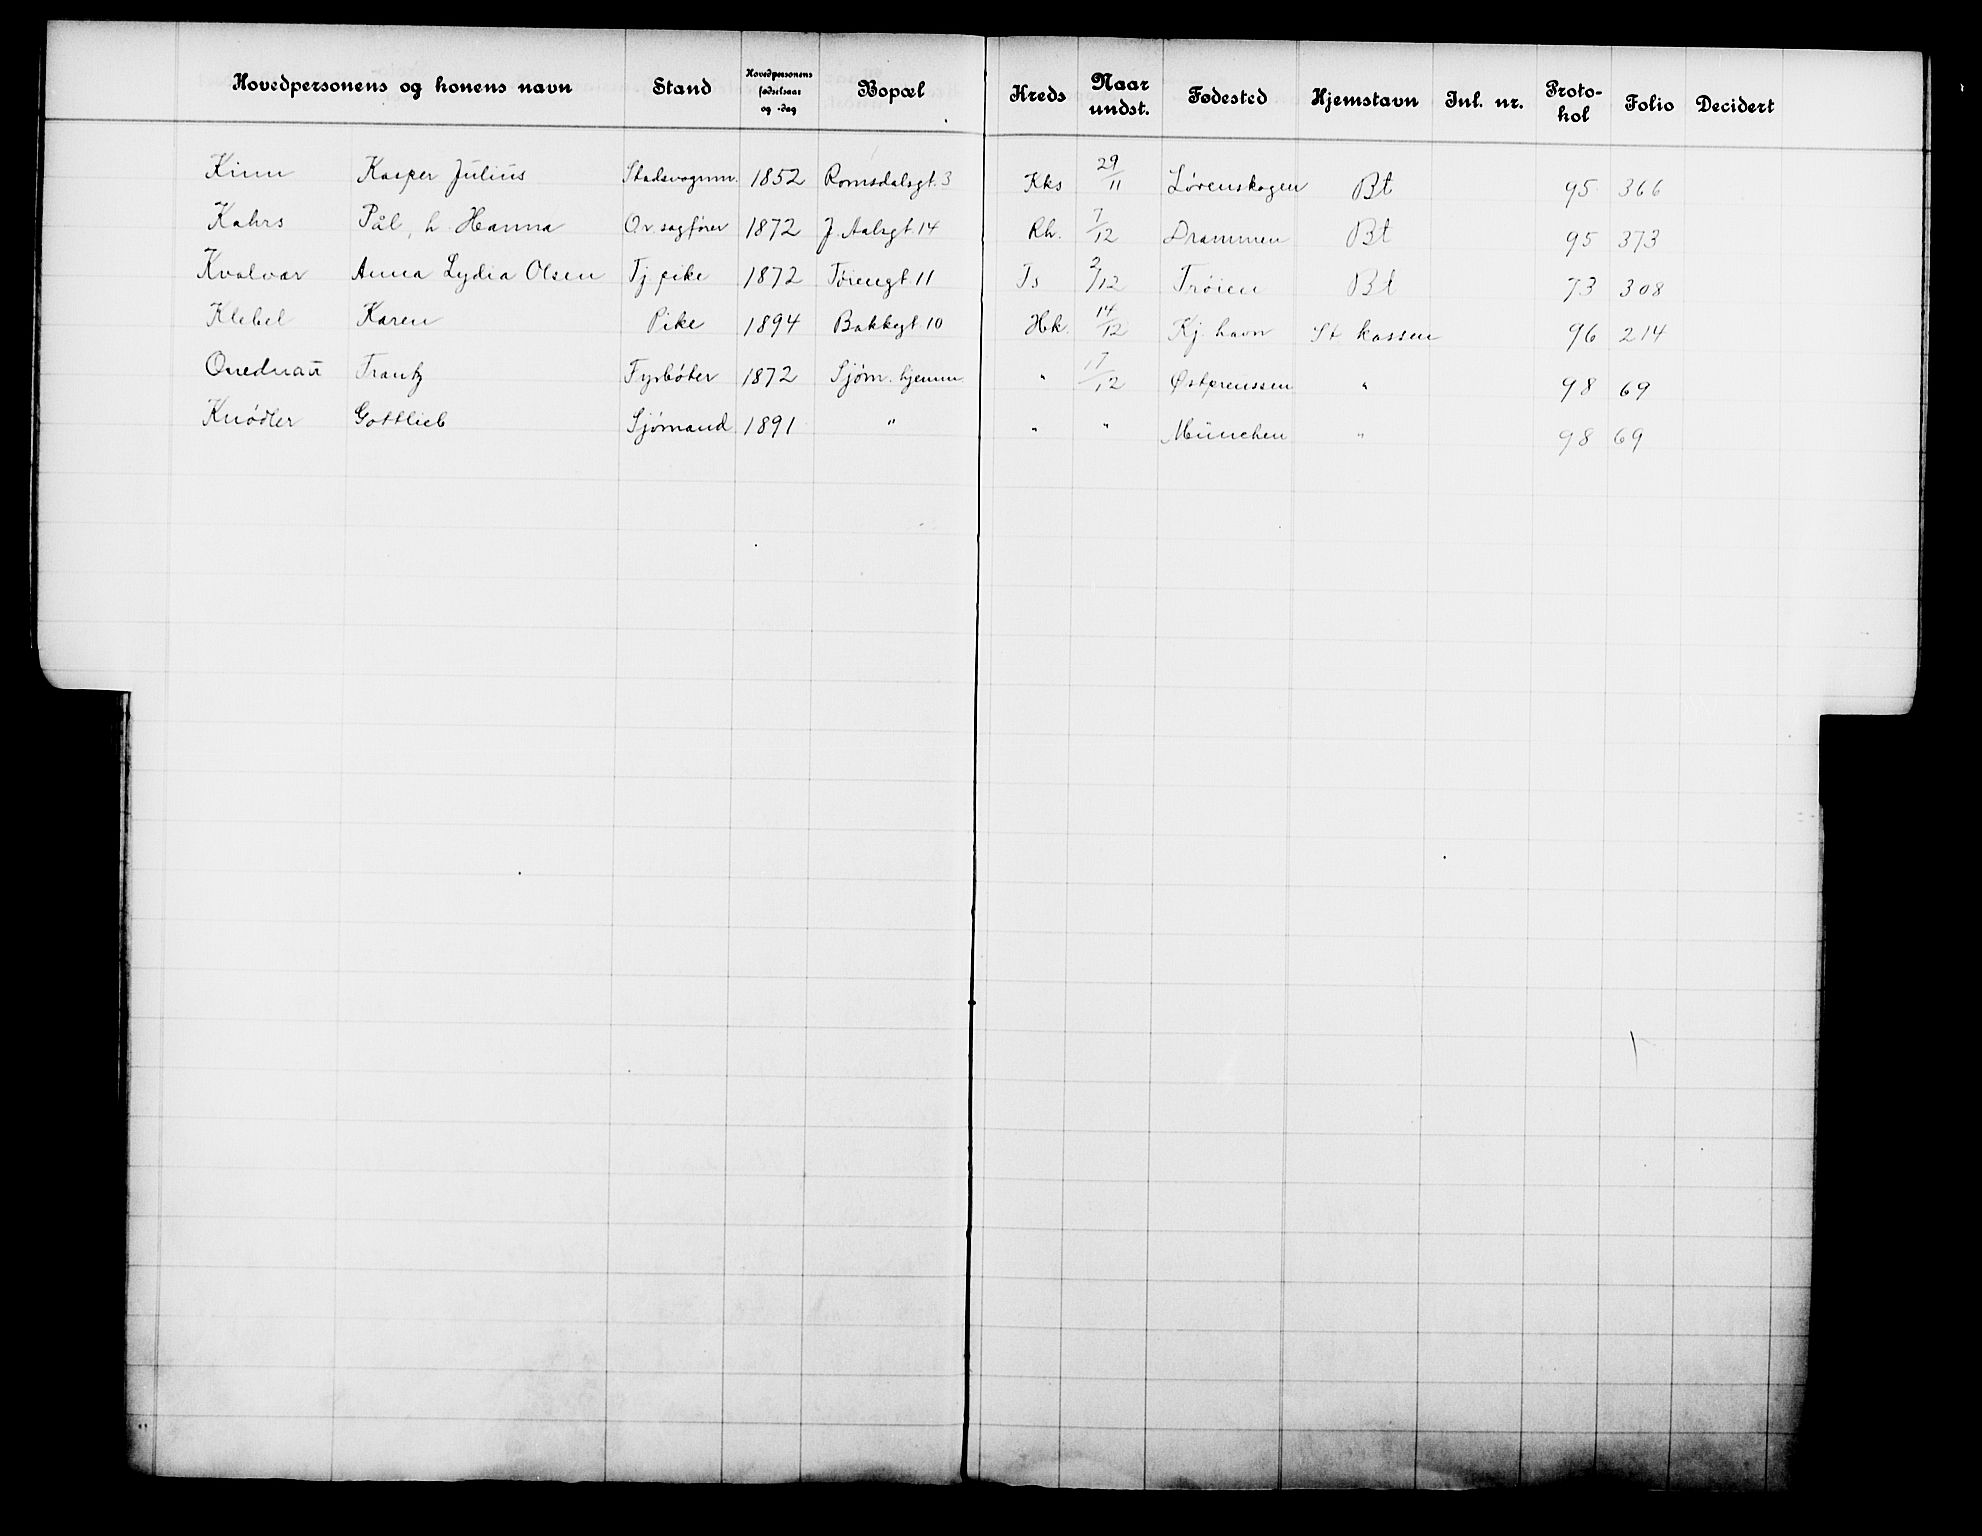 Hovedpersonens og konens navn Stand Hovedpersonens fødselsaar og -dag Bopæl Kreds Naar undst. Fødested Hjemstavn Inl. nr. Proto-kol Folio Decidert
Kinn Kasper Julius Stadsvognm. 1852 Romsdalsgt. 3 Kks 29/11 Lørenskogen Bt 95 366
Kahrs Pål, h. Hanna Ov. sagfører 1872 J. Aalsgt. 14 Rh. 7/12 Drammen Bt 95 373
Kvalvær Anna Lydia Olsen Tj. pike 1872 Tøiengt. 11 Ts 2/12 Trøien Bt 73 308
Klebel Karen Pike 1894 Bakkegt. 10 Hk. 14/12 Kj. havn St. kassen 96 214
Quednaŭ Frantz Fyrbøter 1872 Sjøm. hjemm. " 17/12 Østpreussen " 98 69
Knødler Gottlieb Sjømand 1891 " " " München " 98 69